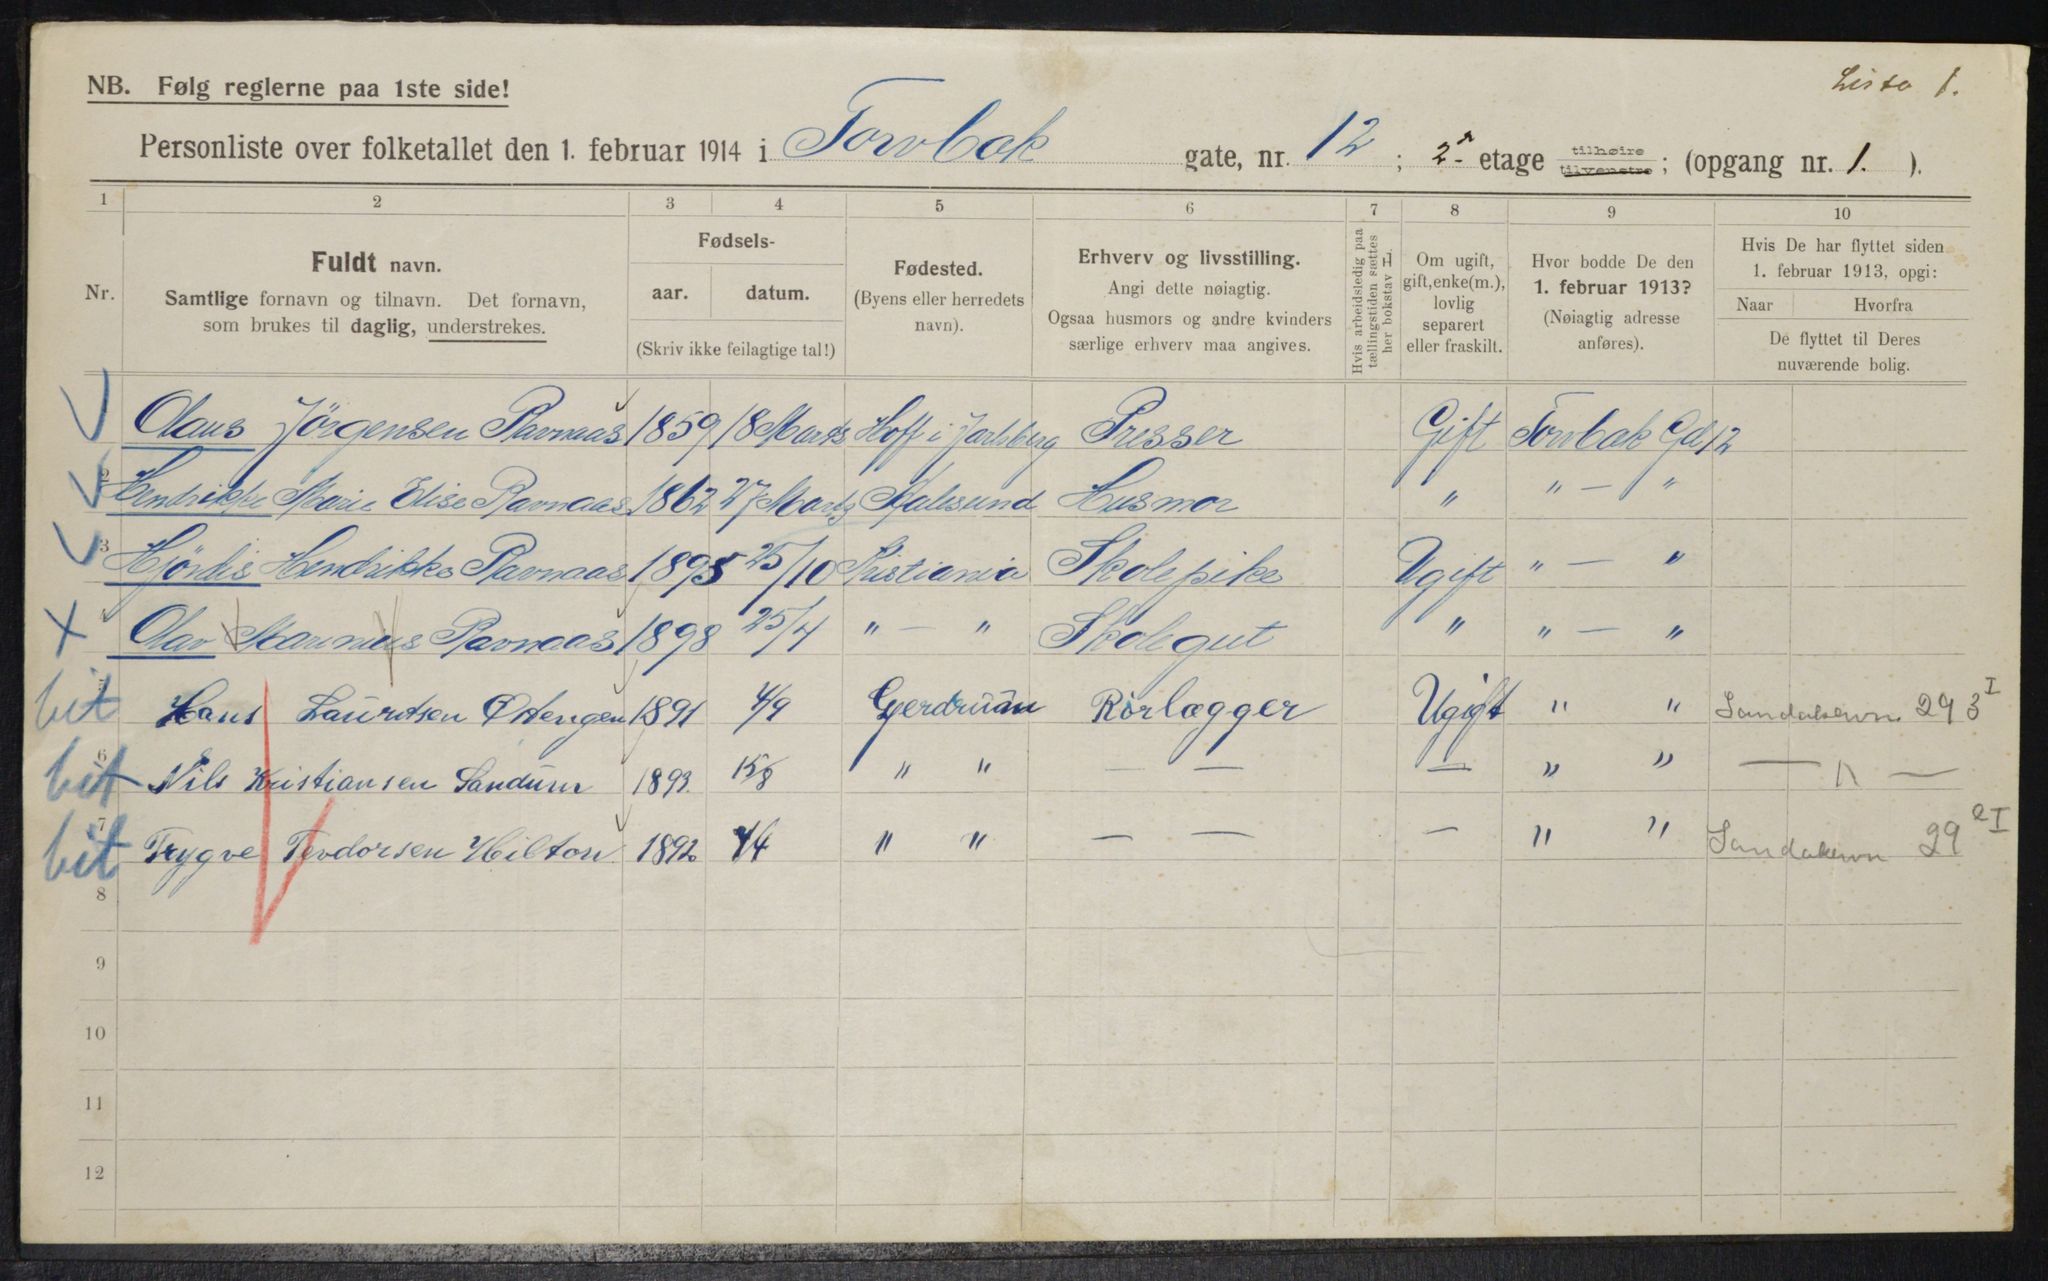 NB. Følg reglerne paa 1ste side!
Liste 1.
Personliste over folketallet den 1. februar 1914 i Torvbak gate, nr. 12 ; 2n etage tilhøire tilvenstre ; (opgang nr. 1. ).
1 2 3 4 5 6 7 8 9 10
Nr.
Fuldt navn.
Samtlige fornavn og tilnavn. Det fornavn,
som brukes til daglig, understrekes.
Fødsels-
aar. datum.
(Skriv ikke feilagtige tal!)
Fødested.
(Byens eller herredets
navn).
Erhverv og livsstilling.
Angi dette nøiagtig.
Ogsaa husmors og andre kvinders
særlige erhverv maa angives.
Hvis arbeidsledig paa
tællingstiden sættes
her bokstav L.
Om ugift,
gift, enke(m.),
lovlig
separert
eller fraskilt.
Hvor bodde De den
1. februar 1913?
(Nøiagtig adresse
anføres).
Hvis De har flyttet siden
1. februar 1913, opgi:
Naar Hvorfra
De flyttet til Deres
nuværende bolig.
Olaus Jörgensen Ravnaas 1859 18 Marts Hoff i Jarlsberg Presser Gift Torvbak Gd 12
2 Hendrikke Marie Elise Ravnaas 1862 27 Marts Aalesund Husmor " " — "
3 Hjördis Hendrikke Ravnaas 1895 25/10 Kristiania Skolepike Ugift " — "
4 Olav Marinius Ravnaas 1898 25/4 " — " Skolegut " " — "
bit Hans Lauritsen Østengen 1891 4/9 Gjerdrum Rørlægger Ugift " " Sandakervn 29 3 I
bit 6 Nils Kristiansen Sandum 1893 15/8 " " — — — " " — " —
bit 7 Trygve Teodorsen Hilton 1892 4/4 " " — — — " " Sandakervn 29 2 I
8
9
10
11
12